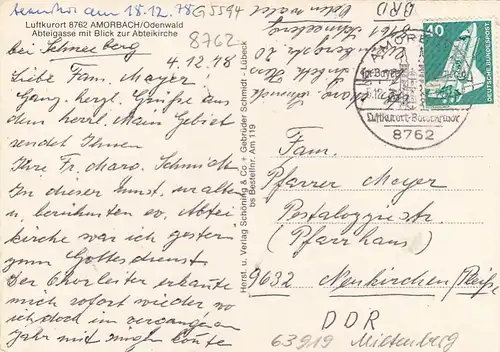 beantw. am 18.12.78 G5594
Luftkurort 8762 AMORBACH/Odenwald
Abteigasse mit Blick zur Abteikirche
8762
bei Schneeberg
4.12.78
Liebe Fam. Meyer
Ganz herzl. Grüße aus
dem herrl. Main Gebiet
sendet Ihnen
Ihre Fr. Marg. Schmidt
In dieser kunst. uralten
u. berühmten ev. Abtei
kirche war ich gestern
zum Gottesdienst
Der Chorleiter erkannte
mich sofort wieder wo
ich doch im vergangenen
Jahr mit
Herst. u. Verlag Schöning & Co + Gebrüder Schmidt - Lübeck
bs Bestellnr. Am 119
BRD
AMORBACH
Luftkurort-Barockjuwel
8762
40
DEUTSCHE BUNDESPOST
Fam.
Pfarrer Meyer
Pestalozzistr
(Pfarrhaus)
9632 Neukirchen/Pleiße
DDR
63919 Miltenberg